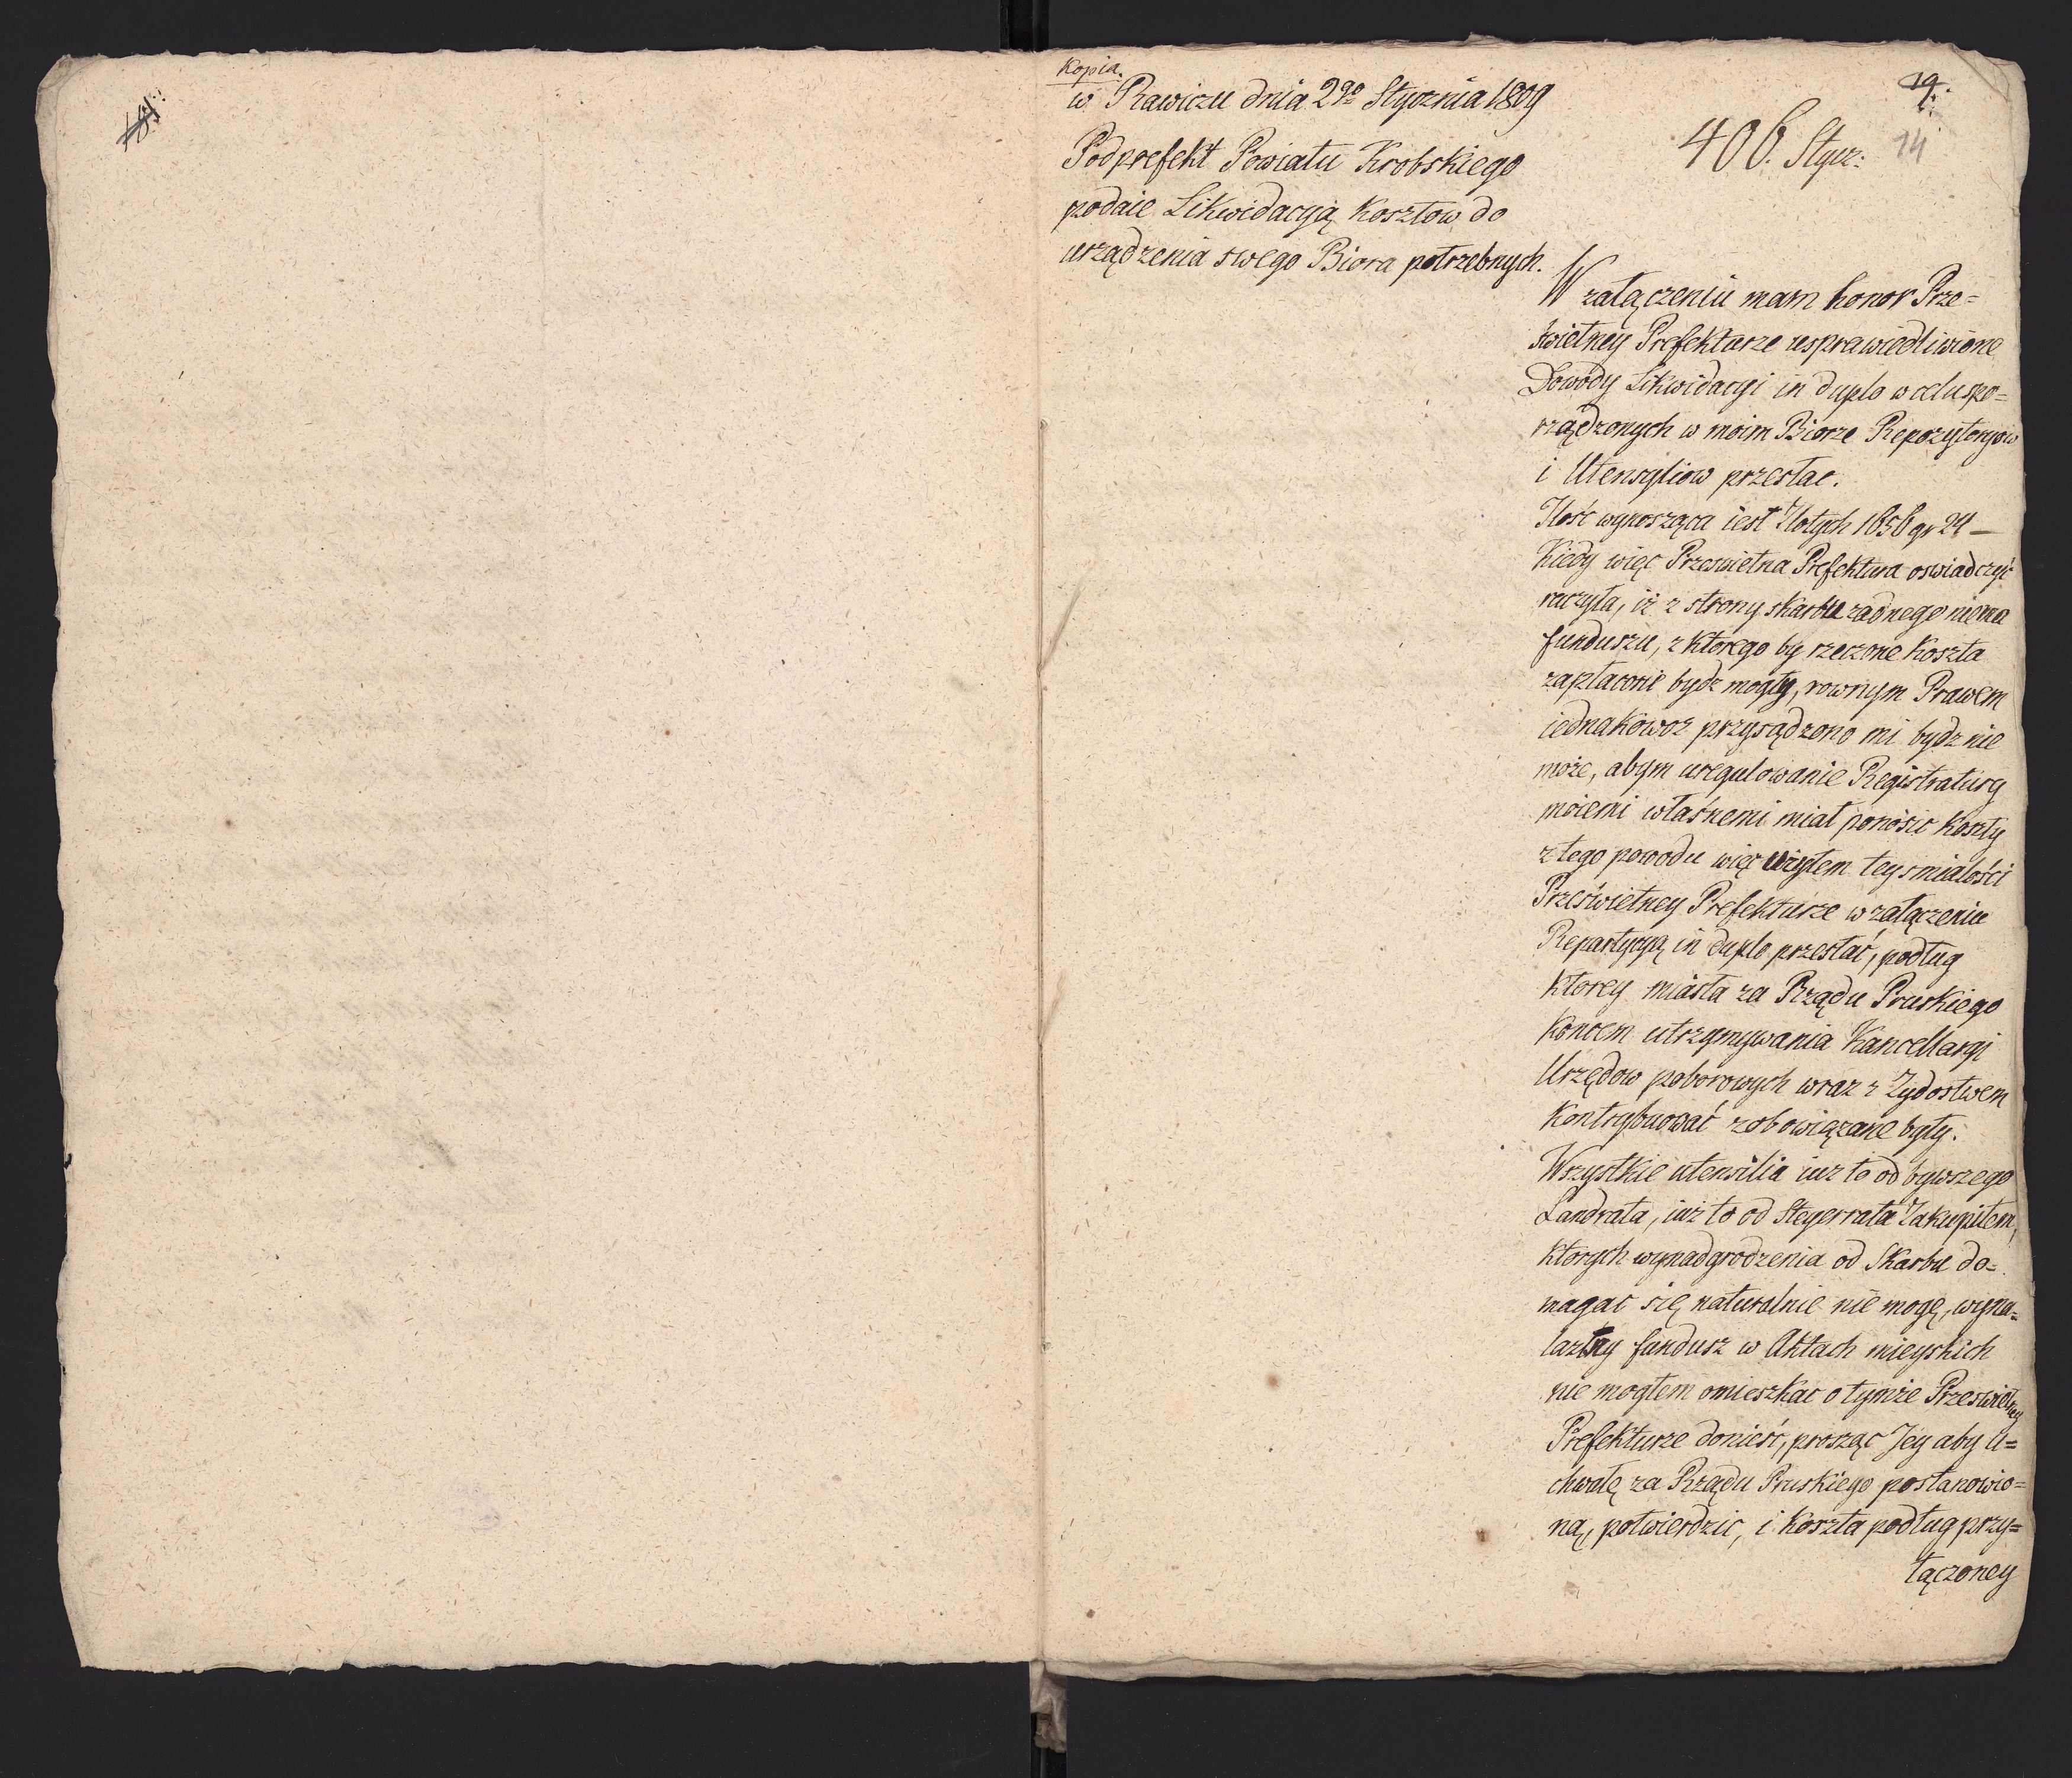 Kopia.
w Rawiczu dnia 2go Stycznia 1809
Podprefekt Powiatu Krobskiego
podaie Likwidacyią Kosztow do
urządzenia swego Biora potrzebnych.
19.
14
406. Stycz:
W załączeniu mam honor Prze=
świetney Prefekturze usprawiedliwione
Dowody Likwidacyi in duplo w celu spo=
rządzonych w moim Biorze Repozytoryow
i Utensyliow przesłac.
Ilość wynosząca iest Złotych 1656 gr 24 —
Kiedy więc Przeswietna Prefektura oswiadczyć
raczyła, iż z strony skarbu zadnego niema
funduszu, z ktorego by rzeczone koszta
zapłacone bydz mogły, rownym Prawem
iednakowoz przysądzono mi bydz nie
może, abym uregulowanie Registratury
moiemi własnemi miał ponosic koszty
z tego powodu więc użyłem tey smiałości
Prześwietney Prefekturze w załączeniu
Repartycyą in duplo przesłać, podług
ktorey miasta za Rządu Pruskiego
koncem utrzymywania Kancellaryi
Urzędow poborowych wraz z Zydostwem
kontrybuować zobowiązane były.
Wszystkie utensilia iuz to od bywszego
Landrata, iuż to od Steyerrata Zakupiłem,
ktorych wynadgrodzenia od Skarbu do=
magac się naturalnie nie mogę, wyna=
lazłszy fundusz w Aktach mieyskich
nie mogłem omieszkac o tymże Przeswietney
Prefekturze donieść, prosząc Jey aby u=
chwałę za Rządu Pruskiego postanowio=
ną, potwierdzic, i koszta podług przy=
łączoney